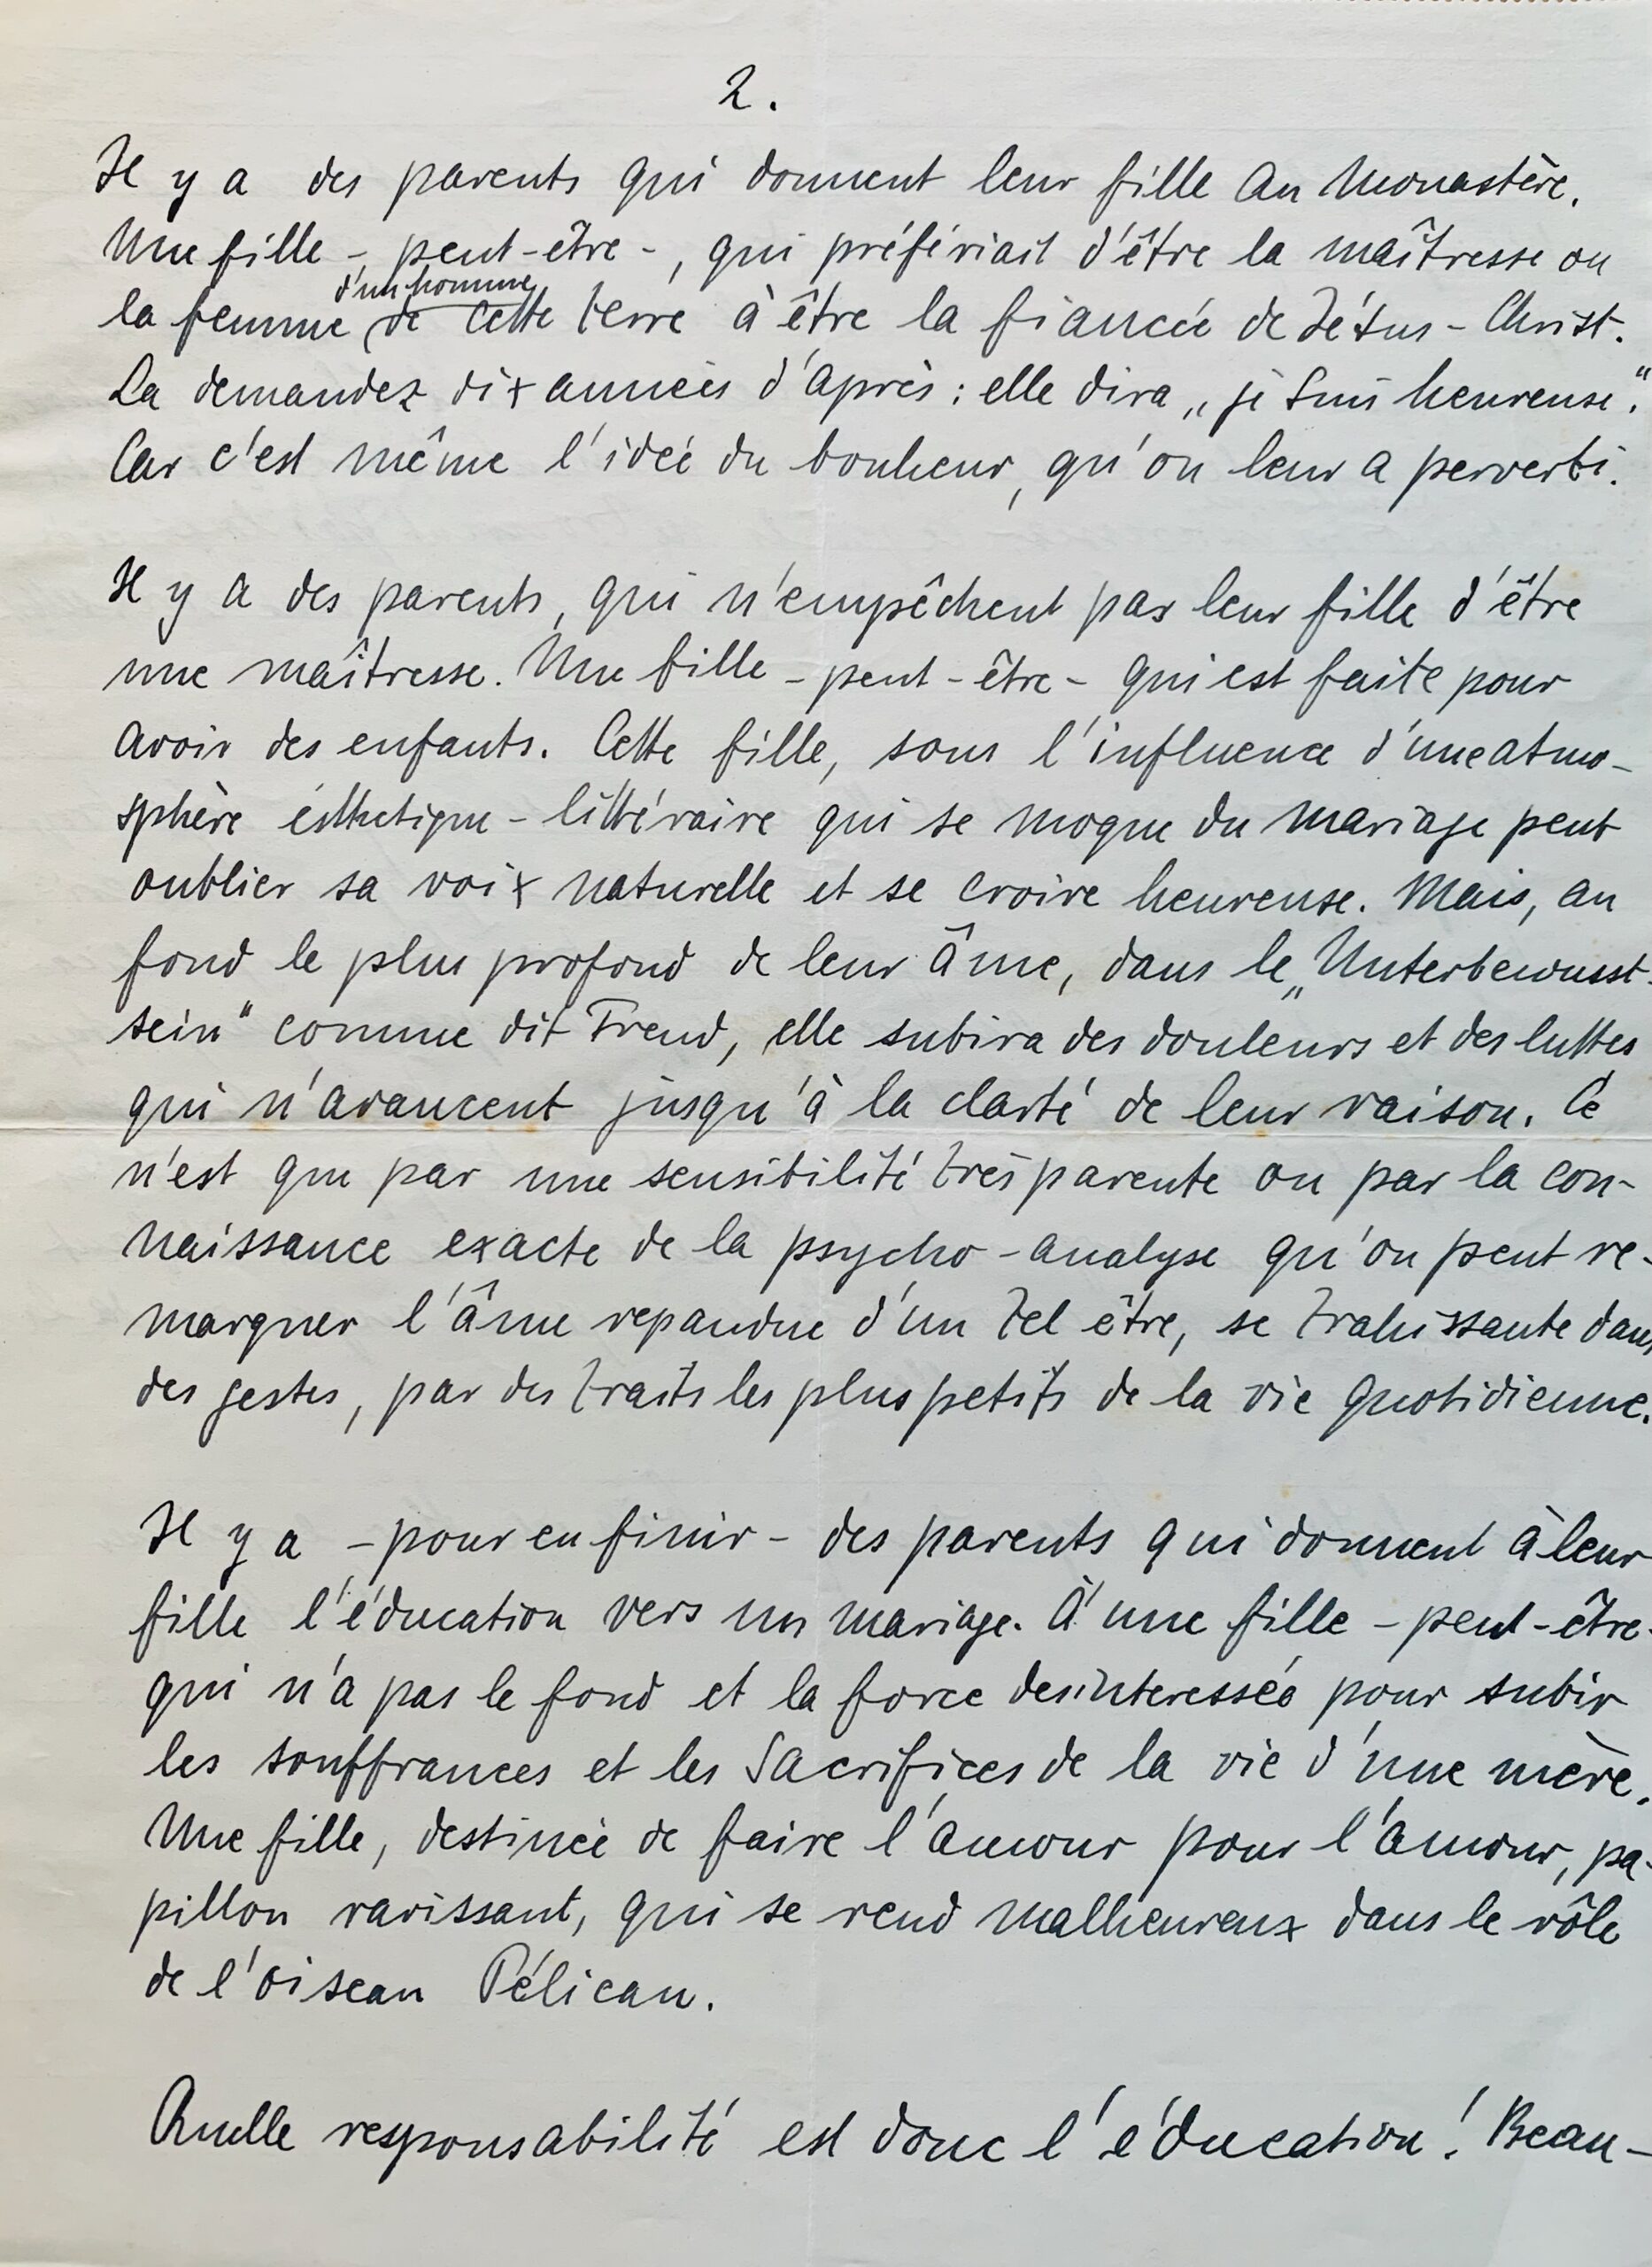 2.
Il y a des parents qui donnent leur fille au Monastère.
Une fille - peut-être -, qui préfériait d'être la maîtresse ou
d'un homme
la femme de cette terre à être la fiancée de Jésus-Christ.
La demandez dix années d'après : elle dira „je suis heureuse“.
Car c'est même l'idée du bonheur, qu'on leur a perverti.
Il y a des parents, qui n'empêchent pas leur fille d'être
une maîtresse. Une fille - peut-être - qui est faite pour
avoir des enfants. Cette fille, sous l'influence d'une atmo-
sphère esthetique-littéraire qui se moque du mariage peut
oublier sa voix naturelle et se croire heureuse. Mais, au
fond le plus profond de leur âme, dans le „Unterbewusst-
sein“ comme dit Freud, elle subira des douleurs et des luttes
qui n'avancent jusqu'à la clarté de leur raison. Ce
n'est que par une sensibilité très parente ou par la con-
naissance exacte de la psycho-analyse qu'on peut re-
marquer l'âme repandue d'un tel être, se trahissante dans
des gestes, par des traits les plus petits de la vie quotidienne.
Il y a - pour en finir - des parents qui donnent à leur
fille l'éducation vers un mariage. À une fille - peut-être -
qui n'a pas le fond et la force desinteressée pour subir
les souffrances et les sacrifices de la vie d'une mère.
Une fille, destinée de faire l'amour pour l'amour, pa-
pillon ravissant, qui se rend malheureux dans le rôle
de l'oiseau Pélican.
Quelle responsabilité est donc l'éducation! Beau-